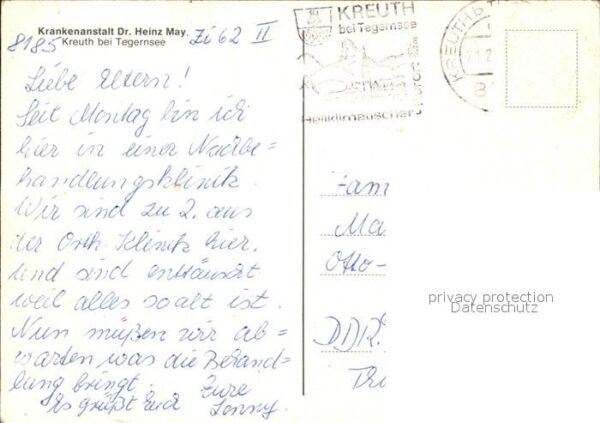 Krankenanstalt Dr. Heinz May.
8185 Kreuth bei Tegernsee Zi 62 II
Liebe Eltern!
Seit Montag bin ich
hier in einer Nachbe=
handlungsklinik.
Wir sind zu 2. aus
der Orth. Klinik hier.
Und sind entäuscht
weil alles so alt ist.
Nun müßen wir ab=
warten was die Behand=
lung bringt. Eure
Es grüßt Euch Jenny.
KREUTH
bei Tegernsee
Heilklimatischer Kurort
KREUTH b
8
Fam
Ma
Otto-
DDR.
Th
privacy protection
Datenschutz